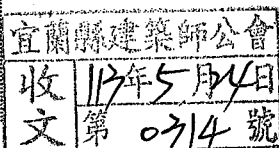 宜蘭縣建築師公會
收文
113年5月24日
第 0314 號